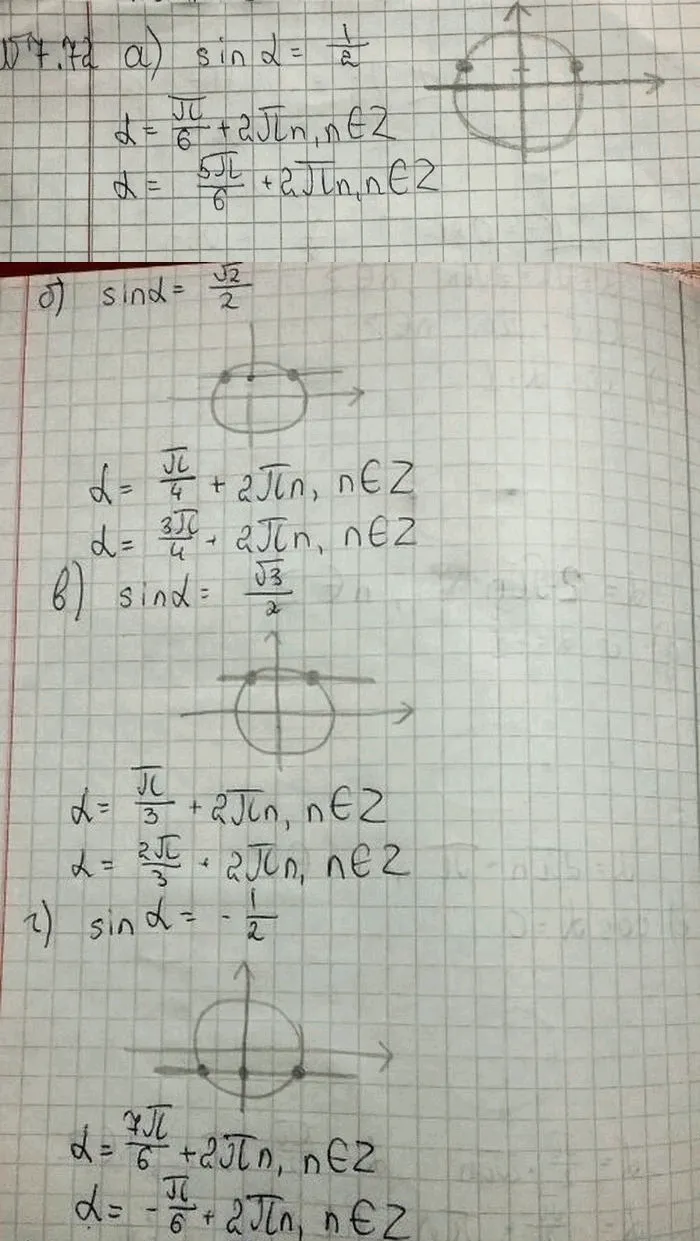 № 7.72 а) sin α = 1/2
α = π/6 + 2πn, n ∈ Z
α = 5π/6 + 2πn, n ∈ Z
б) sin α = √2/2
α = π/4 + 2πn, n ∈ Z
α = 3π/4 + 2πn, n ∈ Z
в) sin α = √3/2
α = π/3 + 2πn, n ∈ Z
α = 2π/3 + 2πn, n ∈ Z
г) sin α = - 1/2
α = 7π/6 + 2πn, n ∈ Z
α = - π/6 + 2πn, n ∈ Z